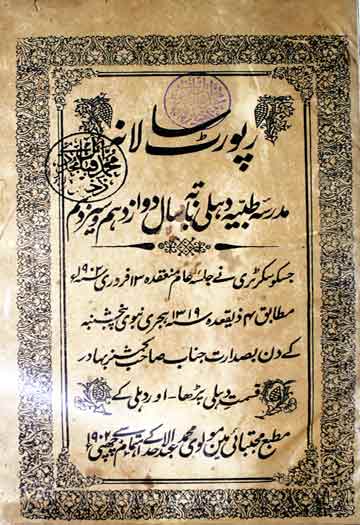 رپورٹ سالانہ
مدرسہ طبیہ دہلی بابتہ سال دوازدہم و سیزدہم
جسکو سکرٹری نے جلسہ عام منعقدہ ۱۳ فروری سنہ ۱۹۰۲ء
مطابق ۴ ذیقعدہ سنہ ۱۳۱۹ ہجری نبوی پنجشنبہ
کے دن بصدارت جناب صاحب کمشنر بہادر
قسمت دہلی پڑھا - اور دہلی کے
مطبع مجتبائی مین مولوی محمد عبد الاحد کے اہتمام سے چھپی ۱۹۰۲ء